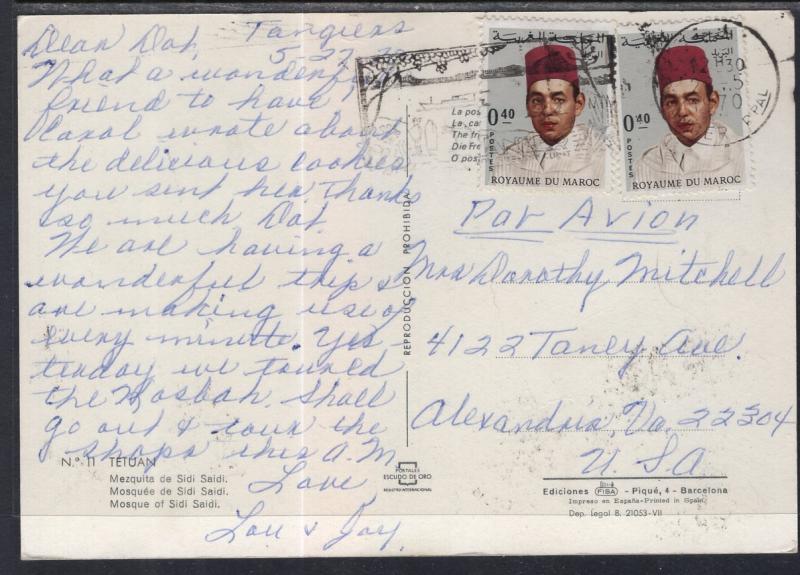 Dear Dot, Tangiers
5-27-70
What a wonderful
friend to have!
Carol wrote about
the delicious cookies
you sent her. Thanks
so much Dot.
We are having a
wonderful trip &
are making use of
every minute. Yes-
terday we toured
the Kasbah. Shall
go out & tour the
shops this A.M.
Love,
Lou & Joy.
N.º 11 TETUAN
Mezquita de Sidi Saidi.
Mosquée de Sidi Saidi.
Mosque of Sidi Saidi.
REPRODUCCION PROHIBIDA
POSTALES
ESCUDO DE ORO
REGISTRO INTERNACIONAL
La pos
La ca
The fri
Die Fre
O pos
المملكة المغربية
0.40
POSTES
ROYAUME DU MAROC
المملكة المغربية
البريد
0.40
POSTES
ROYAUME DU MAROC
Par Avion
Mrs Dorothy Mitchell
4122 Taney Ave.
Alexandria, Va. 22304
U.S.A
Ediciones FISA - Piqué, 4 - Barcelona
Impreso en España-Printed in Spain
Dep. Legal B. 21053-VII